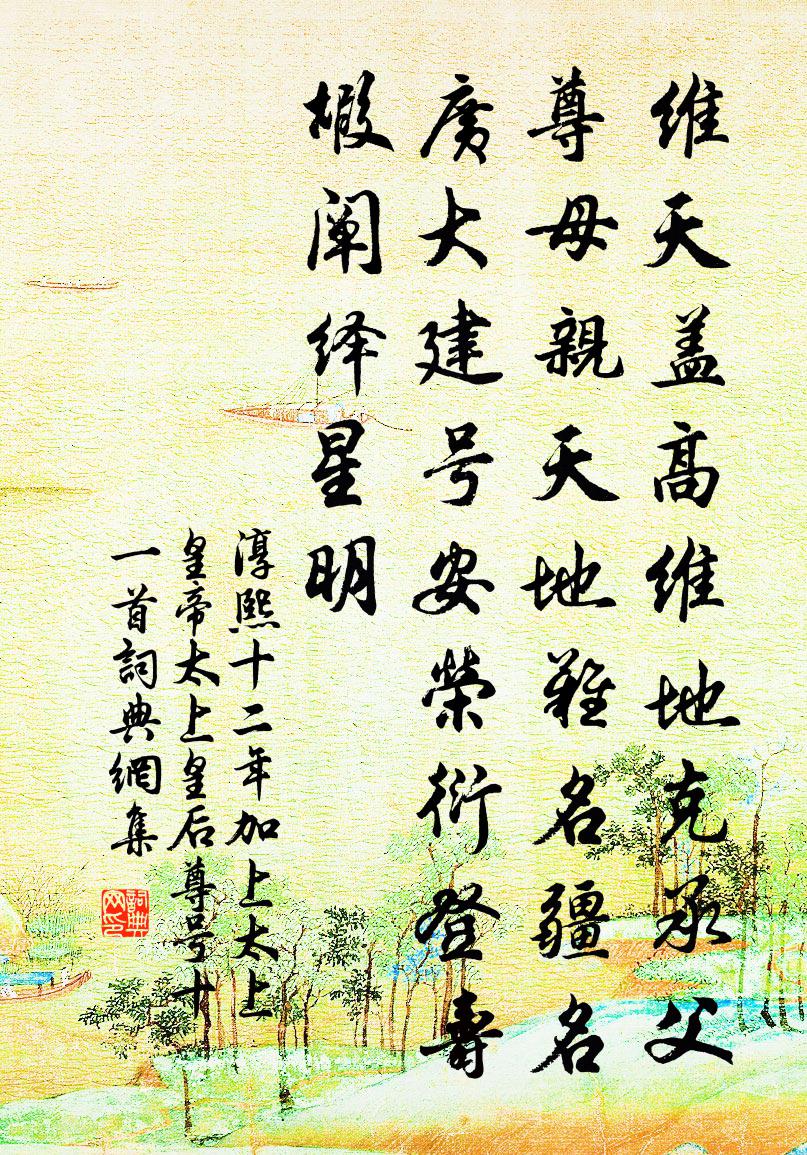 维天盖高维地克承父
尊母親天地難名疆名
廣大建号安榮衍登壽
椵阐绎星明
淳熙十二年加上太上
皇帝太上皇后尊号十
一首詞典網集
詞典网印